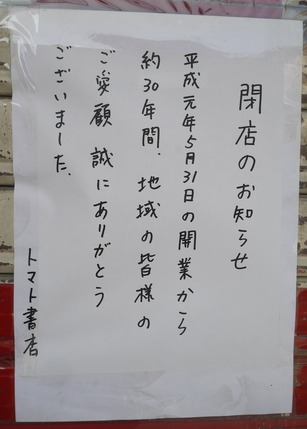 閉店のお知らせ
平成元年5月31日の開業から
約30年間、地域の皆様の
ご愛顧 誠にありがとう
ございました、
トマト書店